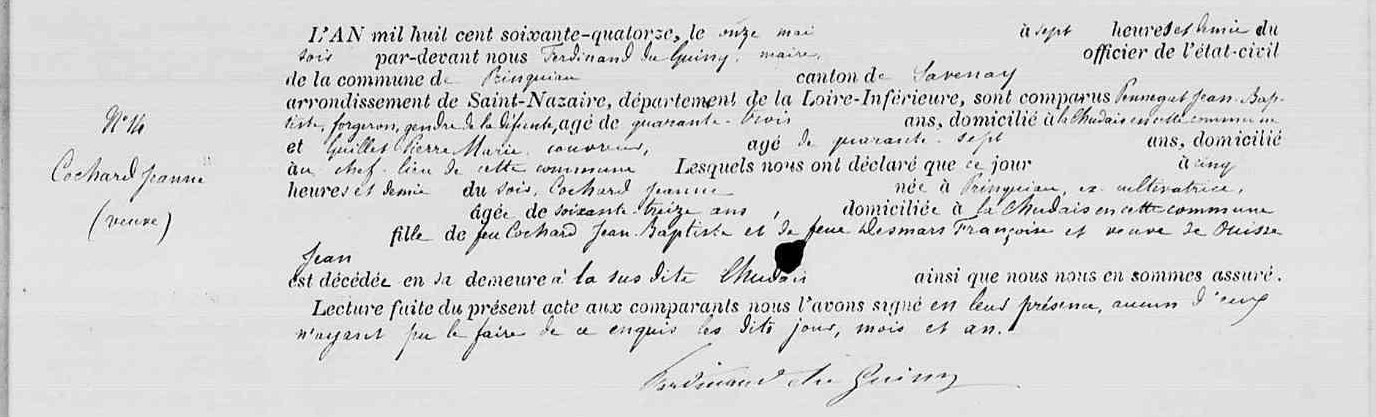 L'AN mil huit cent soixante-quatorze, le onze mai à sept heures et demie du
soir par-devant nous Ferdinand du Guiny, maire, officier de l'état-civil
de la commune de Prinquiau canton de Savenay
arrondissement de Saint-Nazaire, département de la Loire-Inférieure, sont comparus Jean-Bap-
tiste, forgeron, gendre de la défunte, agé de quarante-trois ans, domicilié à la Chudais en cette commune
N° 14
et Guillet Pierre Marie, couvreur, agé de quarante-sept ans, domicilié
Cochard Jeanne
au chef-lieu de cette commune Lesquels nous ont déclaré que ce jour à cinq
heures et demie du soir, Cochard Jeanne née à Prinquiau, ex cultivatrice,
(veuve)
âgée de soixante-treize ans, domiciliée à la Chudais en cette commune
fille de feu Cochard Jean-Baptiste et de feue Desmars Françoise et veuve de Ouisse
Jean
est décédée en sa demeure à la sus dite Chudais ainsi que nous nous en sommes assuré.
Lecture faite du présent acte aux comparants nous l'avons signé en leur présence, aucun d'eux
n'ayant pu le faire de ce enquis les dits jour, mois et an.
Ferdinand du Guiny